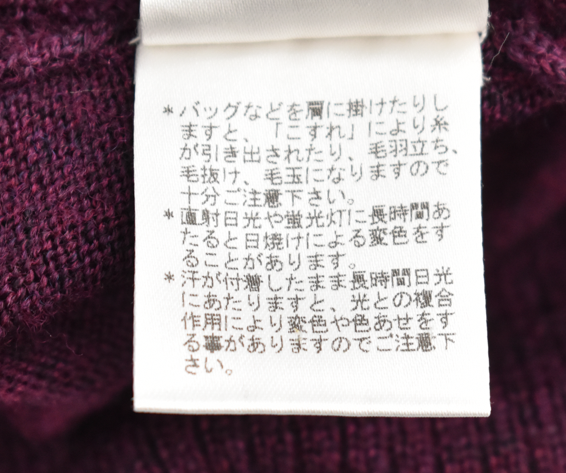 *バッグなどを肩に掛けたりし
ますと、「こすれ」により糸
が引き出されたり、毛羽立ち、
毛抜け、毛玉になりますので
十分ご注意下さい。
*直射日光や蛍光灯に長時間あ
たると日焼けによる変色をす
ることがあります。
*汗が付着したまま長時間日光
にあたりますと、光との複合
作用により変色や色あせをす
る事がありますのでご注意下
さい。